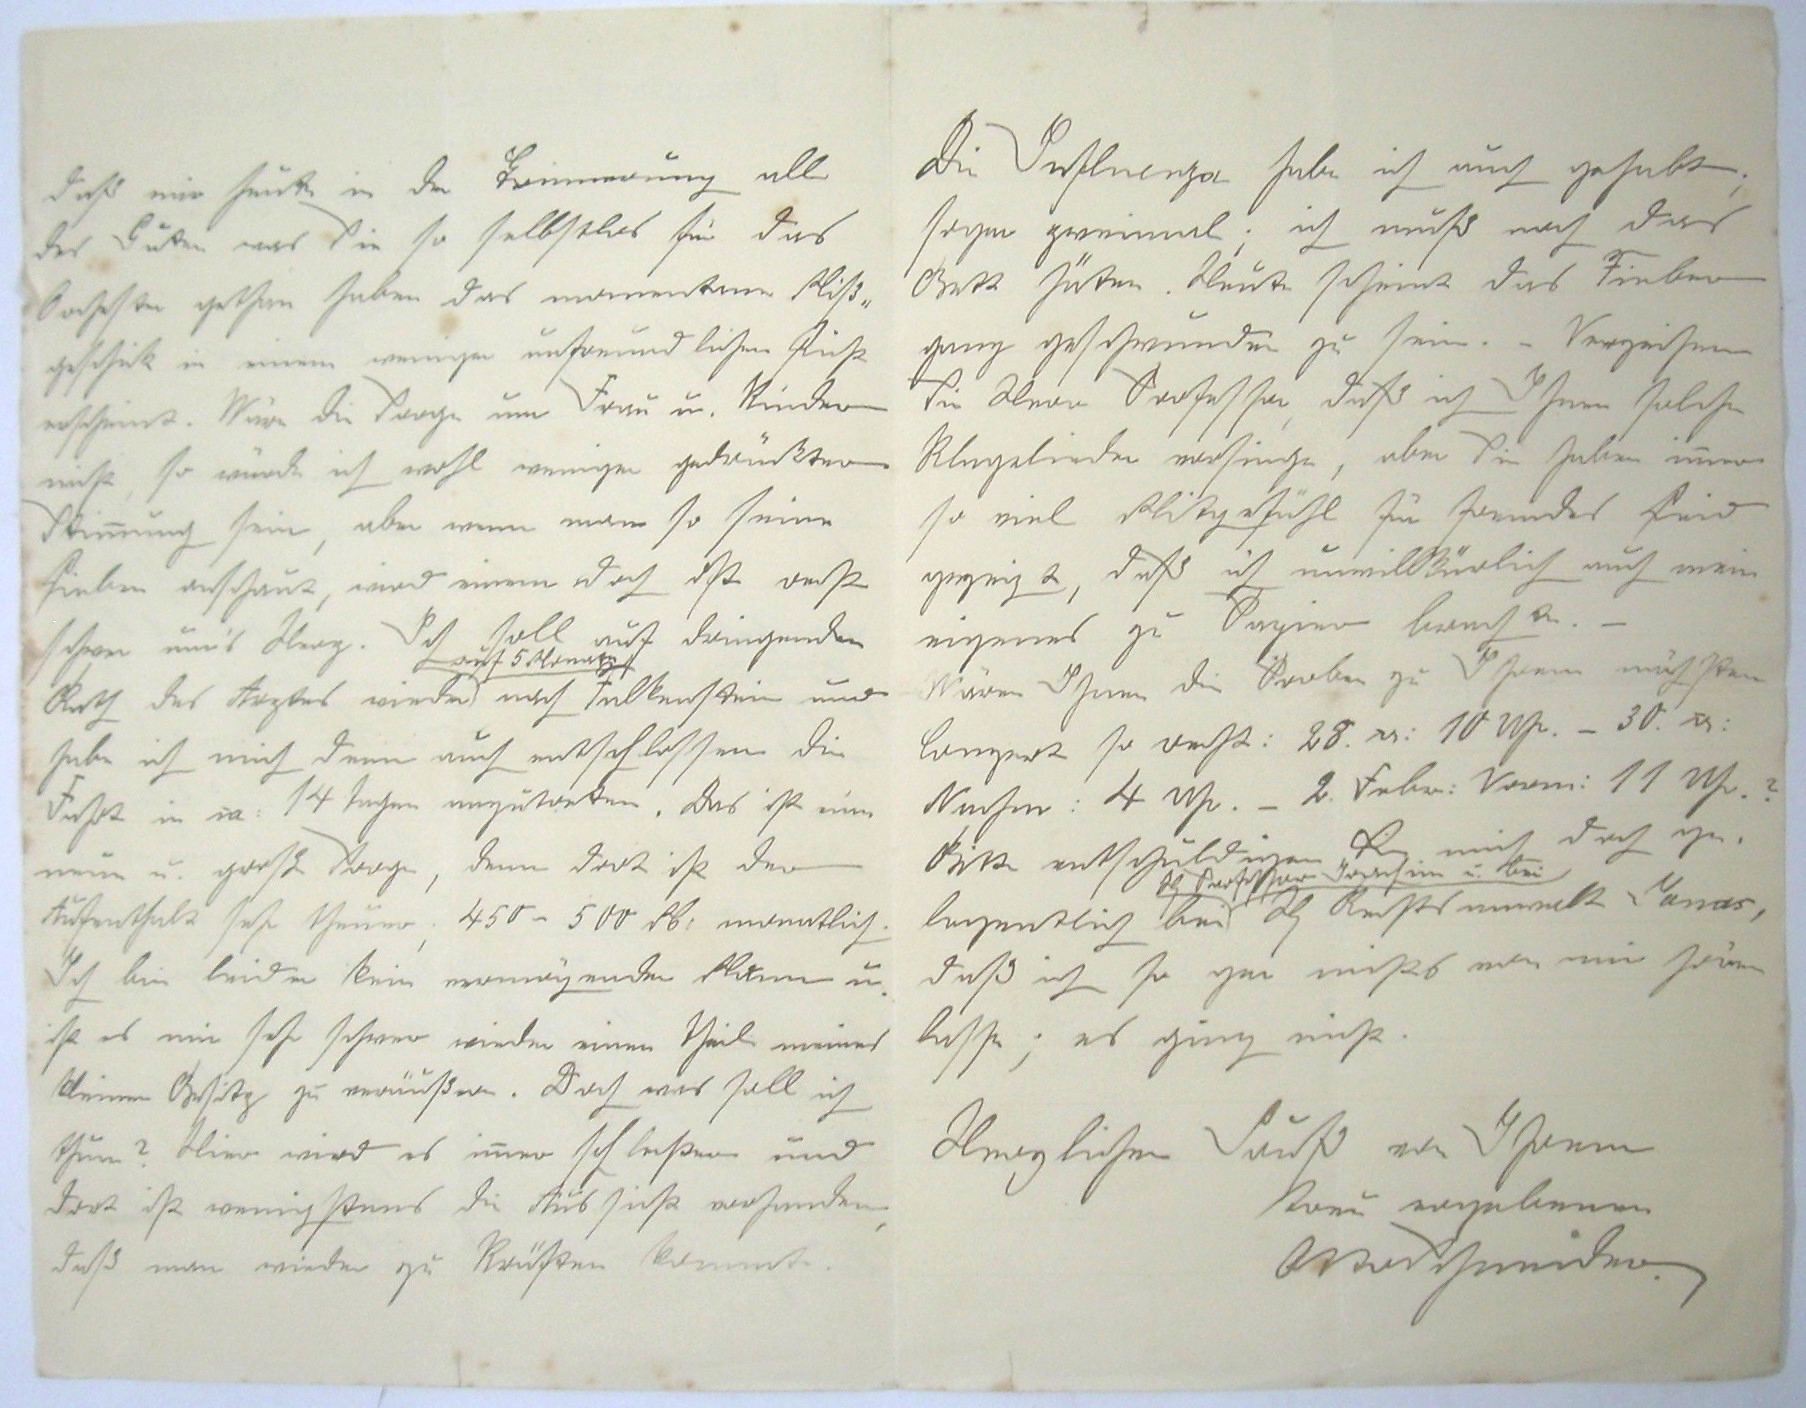 daß mir heute in der Erinnerung all
des Guten was Sie so selbstlos für das
Orchester gethan haben das momentane Miß-
geschick in einem weniger unfreundlichen Licht
erscheint. Wäre die Sorge um Frau u. Kinder
nicht, so würde ich wohl weniger gedrückter
Stimmung sein, aber wenn man so seine
Lieben anschaut, wird einem doch oft recht
schwer um's Herz. Ich soll auf dringenden
auf 5 Monate
Rath des Arztes wieder nach Falkenstein und
habe ich mich denn auch entschlossen die
Fahrt in ca: 14 Tagen anzutreten. Das ist eine
neue u. große Sorge, denn dort ist der
Aufenthalt sehr theuer, 450 - 500 M: monatlich.
Ich bin leider kein vermögender Mann u.
ist es mir sehr schwer wieder einen Theil meines
kleinen Besitz zu veräußern. Doch was soll ich
thun? Hier wird es immer schlechter und
dort ist wenigstens die Aussicht vorhanden,
daß man wieder zu Kräften kommt.
Die Influenza habe ich auch gehabt,
sogar zweimal; ich muß noch das
Bett hüten. Heute scheint das Fieber
ganz geschwunden zu sein. - Verzeihen
Sie Herr Professor, daß ich Ihnen solche
Klagelieder vorsinge, aber Sie haben immer
so viel Mitgefühl für fremdes Leid
gezeigt, daß ich unwillkürlich auch mein
eigenes zu Papier brachte. -
Wären Ihnen die Proben zu Ihrem nächsten
Conzert so recht: 28. 10 Uhr. - 30.
Nachm: 4 Uhr. - 2. Febr: Vorm: 11 Uhr.?
Bitte entschuldigen Sie mich doch ge-
Professor Joachim u. bei
legentlich bei H Rechtsanwalt
daß ich so gar nichts von mir hören
lasse; es ging nicht.
Herzlichen Gruß von Ihrem
treu ergebenen
Otto Schneider.